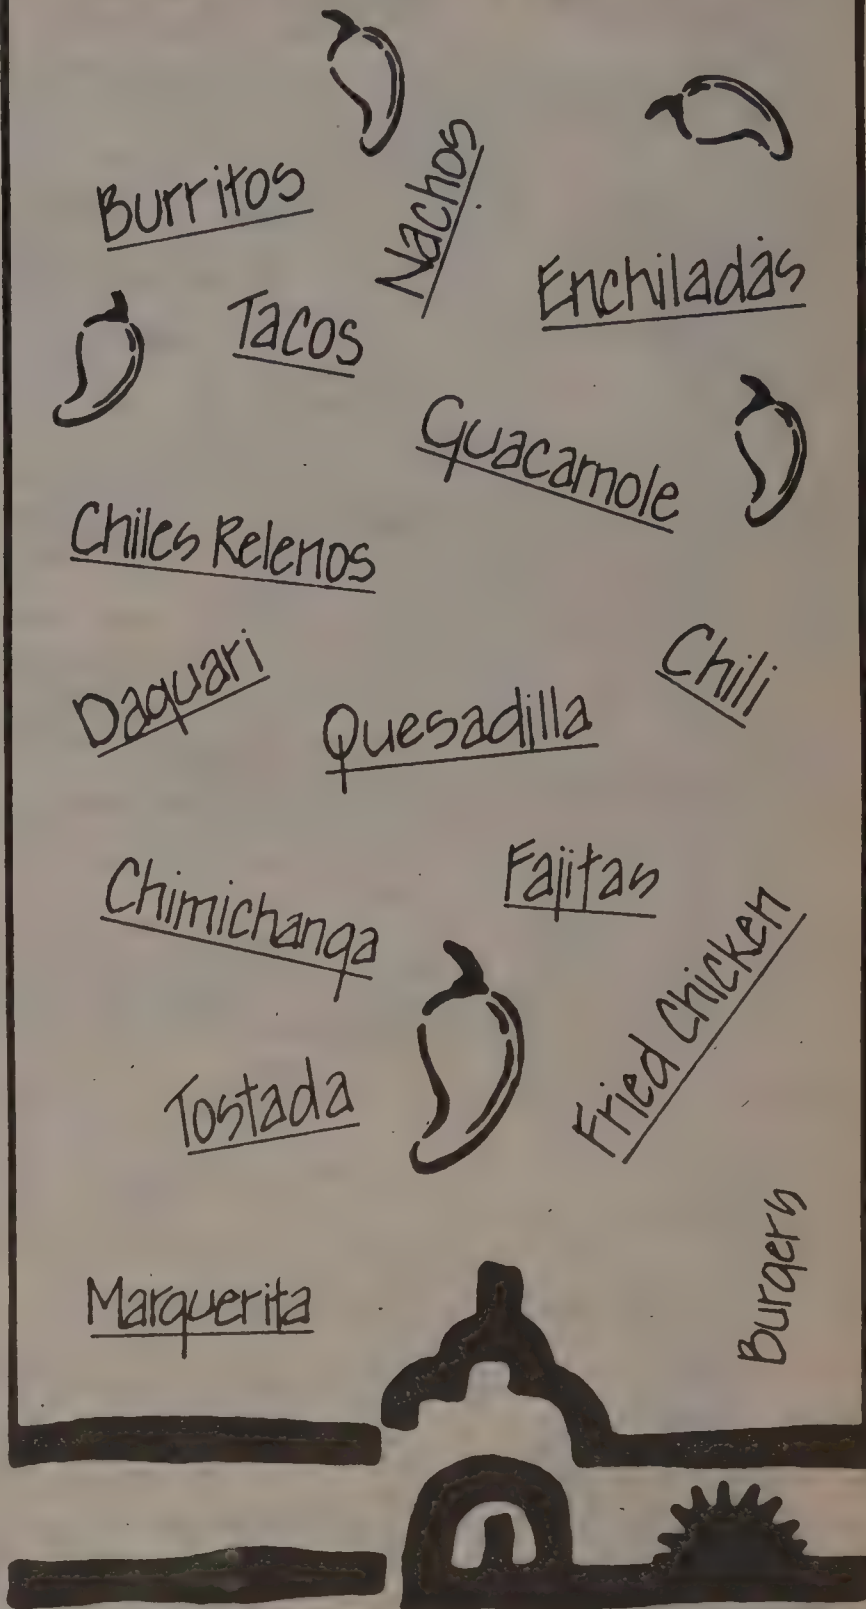 Burritos
Nachos
Enchiladas
Tacos
Guacamole
Chiles Relenos
Daquari
Chili
Quesadilla
Chimichanga
Fajitas
Fried Chicken
Tostada
Burgers
Marguerita